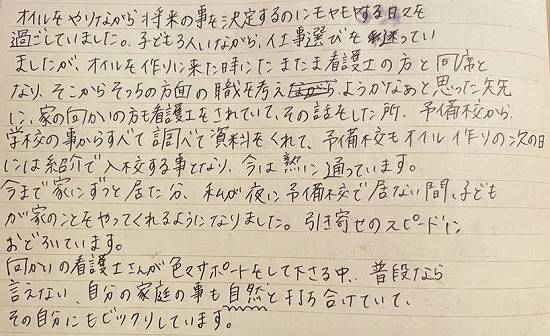 オイルをやりながら将来の事を決定するのにモヤモヤする日々を
過ごしていました。子ども3人いながら、仕事選びを迷ってい
ましたが、オイルを作りに来た時にたまたま看護士の方と同席と
なり、そこからそっちの方面の職を考えようかなぁと思った矢先
に、家の向かいの方も看護士をされていて、その話をした所、予備校から、
学校の事からすべて調べて資料をくれて、予備校もオイル作りの次の日
には紹介で入校する事となり、今は熱に通っています。
今まで家にずっと居た分、私が夜に予備校で居ない間、子ども
が家のことをやってくれるようになりました。引き寄せのスピードに
おどろいています。
向かいの看護士さんが色々サポートをして下さる中、普段なら
言えない、自分の家庭の事も自然と打ち合けていて、
その自分にもビックリしています。